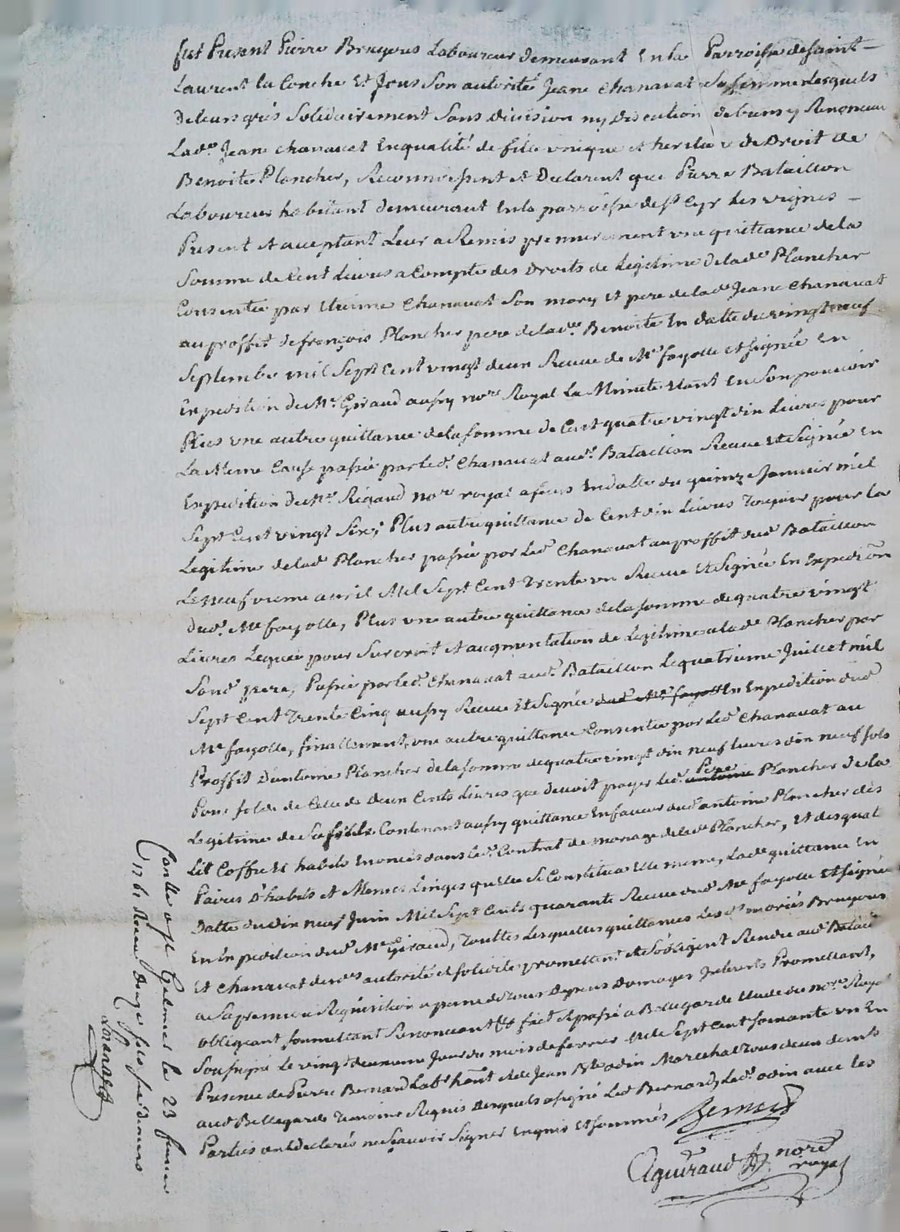 fut Présent Pierre Brugeres Laboureur demeurant En la Parroisse de saint
Laurent la Conche Et sous Son autorité Jeane Chanavat Sa femme Lesquels
De leurs grés Solidairement Sans division ny Discution de biens y Renonceant
Lad.e Jeane Chanavat En qualité de fille unique et heritiere de Droit de
Benoite Plancher, Reconnoissent et Declarent que Pierre Bataillon
Laboureur habitant demeurant En la parroisse de st Cyr Les vignes
Present et aceptant Leur a Remis premierement une quittance de la
Somme de Cent Livres a Compte des Droits de Legitime de lad.e Plancher
Consentie par Chanavat Son mary et pere de lad.e Jeane Chanavat
au proffit de françois Plancher pere de lad.e Benoite En datte du vingt neuf
Septembre mil Sept Cent vingt deux Receue de Me fayolle et signée En
Expedition de Me Giraud aussy nore Royal La Minute Etant En Son pouvoir
Plus une autre quittance de la somme de Cent quatre vingt dix Livres pour
La Meme Cause passée par led. Chanavat aud. Bataillon Receue Et Signée En
Expedition de Me Rigaud nore royal a feurs En datte du quinze Janvier mil
Sept Cent vingt Six, Plus autre quittance de Cent dix Livres Toujours pour la
Legitime de lad. Plancher passée par Led. Chanavat au proffit dud. Bataillon
Le neufvieme avril Mil Sept Cent Trente un Receue Et Signée En Expedition
dud. Me fayolle, Plus une autre quittance de la somme de quatre vingt
Livres Leguée pour Surcroit et augmentation de Legitime a lad. Plancher par
Sond. pere, Passée par led. Chanavat aud. Bataillon Le quatrieme Juillet mil
Sept Cent Trente Cinq aussy Receue Et Signée dud. Me fayolle En Expedition dud.
Me fayolle, finallement, une autre quittance Consentie par Led. Chanavat au
Proffit d'antoine Plancher de la somme de quatre vingt dix neuf Livres dix neuf sols
Pour solde de Celle de deux Cents Livres que devoit payer led. Pere antoine Plancher de la
Legitime de Sa fille Contenant aussy quittance En faveur dud. antoine Plancher des
Lit Coffre Et habits Enoncés dans led. Contrat de mariage de lad. Plancher, Et de quat
Paires D'habits et Menus Linges qu'elle Se Constitua Elle meme, Lad.e quittance En
Datte du dix neuf Juin Mil Sept Cents quarante Receue dud. Me fayolle Et signée
En Expedition dud. Me Giraud, Touttes Lesquelles quittances Les d. mariés Brugeres
Et Chanavat de autorité et solidité promettent et s'obligent Rendre aud. Batail
a Sa premiere Requisition a peine de Tous Depens Domages Interets Promettant,
obligeant Soumettant Renonceant fait et passé a Bellegarde Etude du nore Royal
Soussigné Le vingt deuxieme Jour du mois de fevrier Mil Sept Cent soixante un En
Presence de Pierre Bernard Labr hant Et de Jean Bte odin Marechal Tous deux demt
aud. Bellegarde Temoins Requis desquels a signé Led. Bernard, Led. odin avec les
Parties ont declarés ne Sçavoir Signer Enquis Et sommés
Bernard
Aguiraud nore
royal
Conllé a st Galmier le 23 fevrier
1761 Receu douze sols six deniers